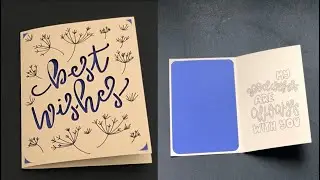 best
wishes
MY
thoughts
ARE
always
WITH YOU